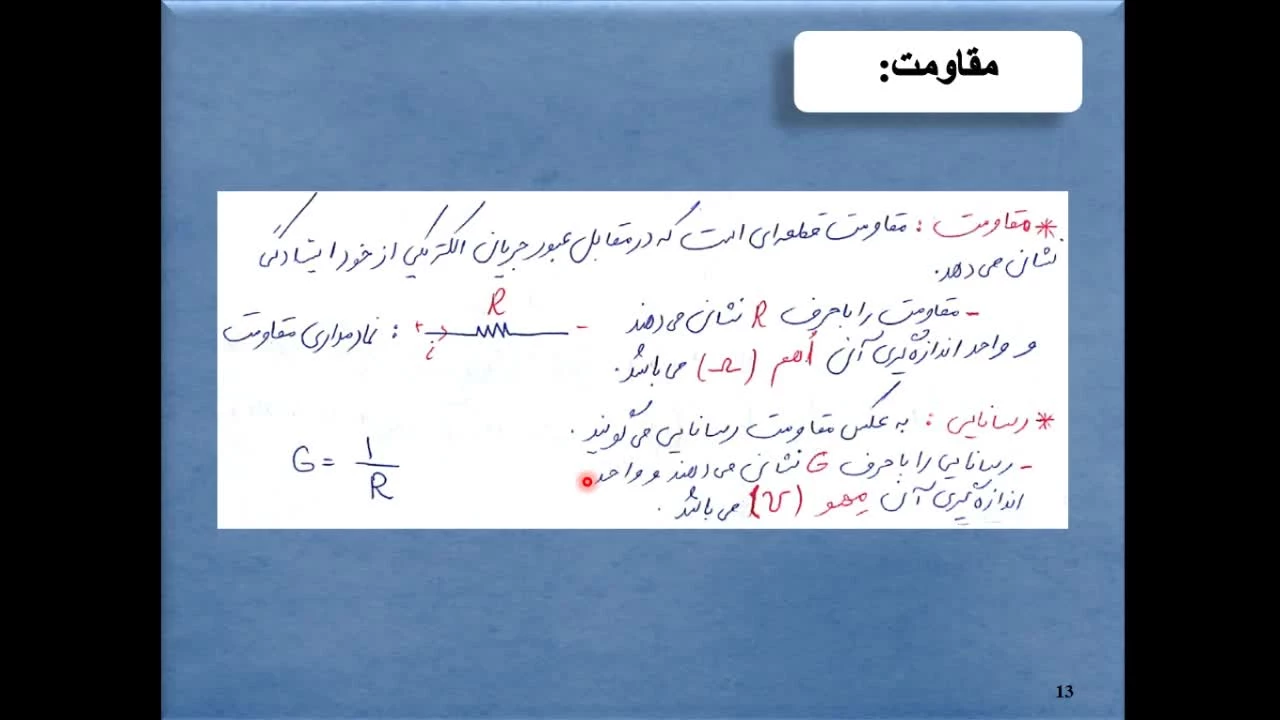 مقاومت:
* مقاومت : مقاومت قطعه‌ای است که در مقابل عبور جریان الکتریکی از خود ایستادگی
نشان می‌دهد.
- مقاومت را با حرف R نشان می‌دهند
و واحد اندازه‌گیری آن اُهم (Ω) می‌باشد.
R
+ -
i
: نماد مداری مقاومت
* رسانایی : به عکس مقاومت رسانایی می‌گویند.
- رسانایی را با حرف G نشان می‌دهند و واحد
اندازه‌گیری آن مهو (℧) می‌باشد.
G = 1/R
13